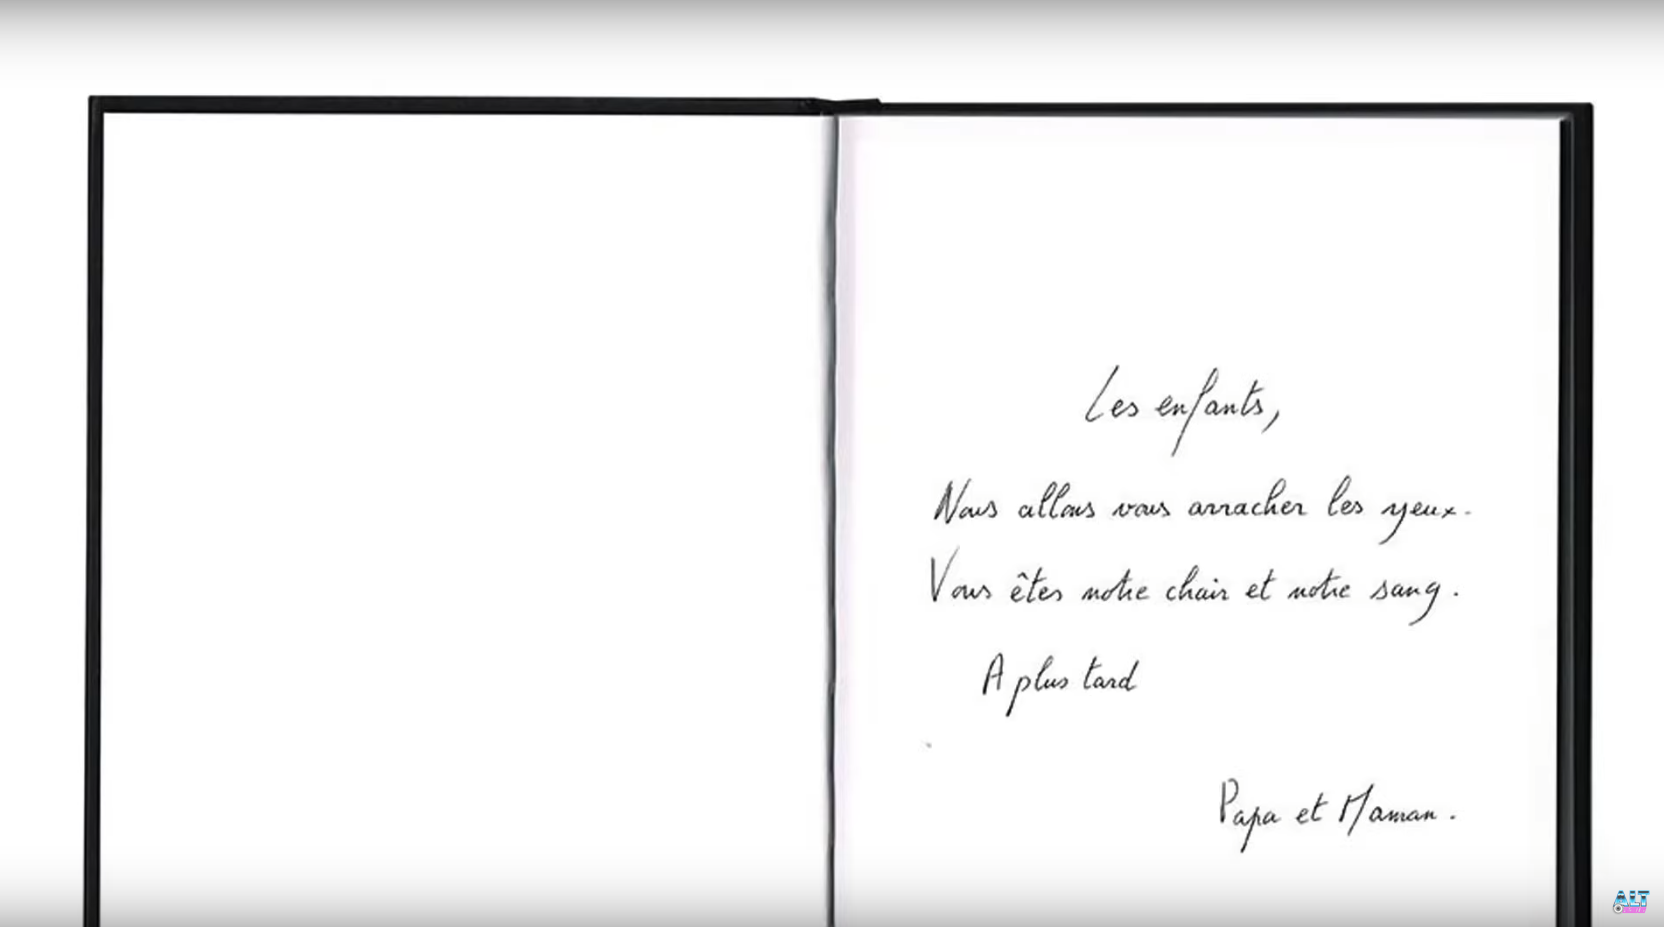 Les enfants,
Nous allons vous arracher les yeux.
Vous êtes notre chair et notre sang.
A plus tard
Papa et Maman.
ALT